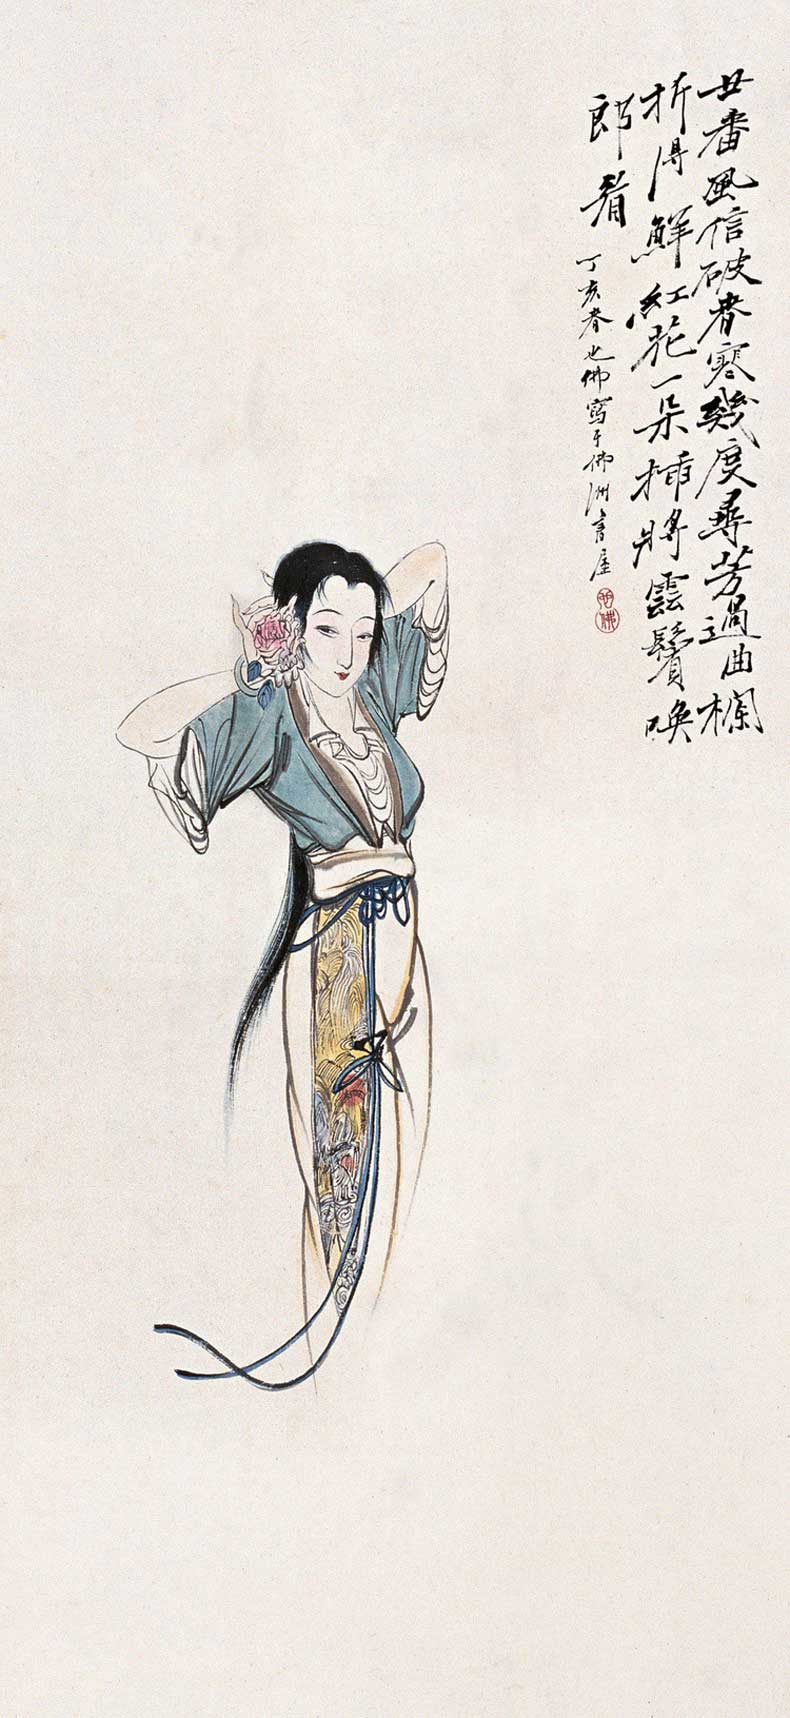 廿番風信破春寒幾度尋芳過曲欄
折得鮮紅花一朵插將雲鬢喚
郎看
丁亥春也佛寫于佛洲書屋
也佛